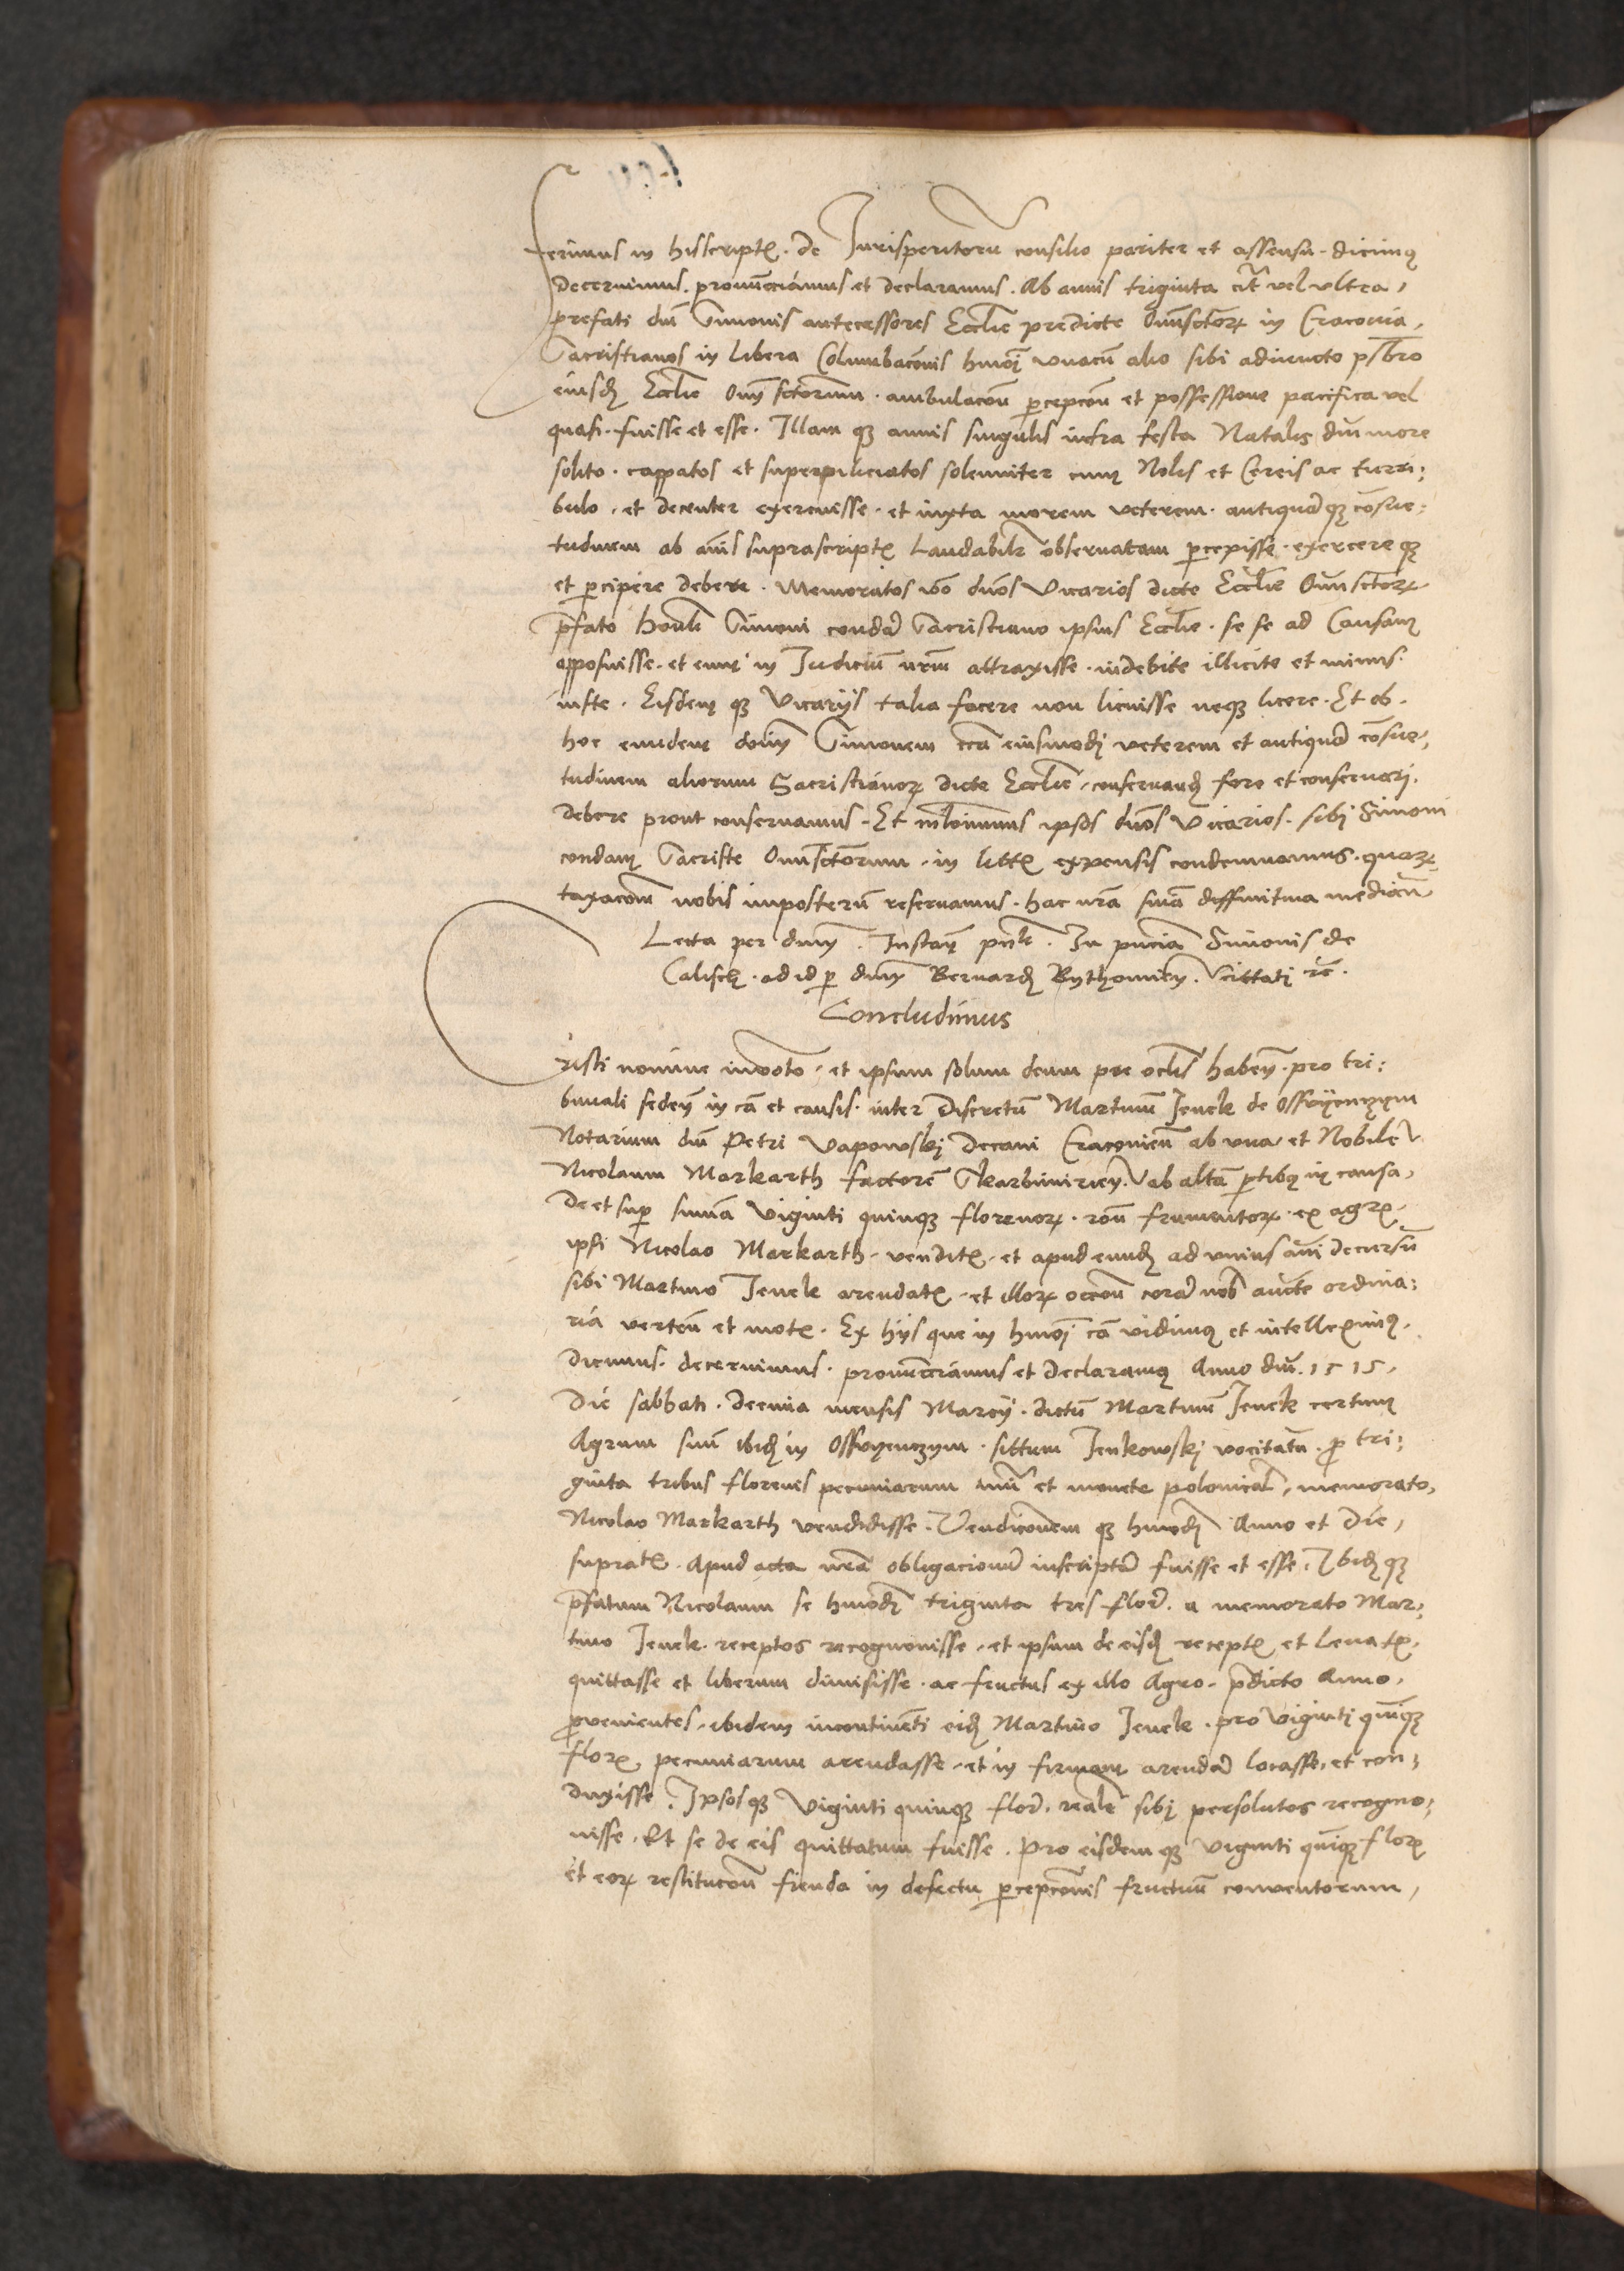 Ferimus in hisscriptꝭ. de Jurisperitorū consilio pariter et assensu. dicimꝰ
decernimus. pronūcciamus et declaramus. Ab annis triginta cit̄ vel vltra,
prefati dnī Simonis antecessores Eccl̄ie predicte Omnisctorꝝ in Cracouia,
Sacristianos in libera Columbacōnis hmōi vnacū alio sibi adiuncto psb̄ro
eiusdꝫ Eccl̄ie Omnỹ sctorum. ambulacōn ꝑcepcōn et possessione pacifica vel
quasi. fuisse et esse. Illam qꝫ annis singulis infra festa Natalis dnī more
solito. cappatos et superpiliciatos solemniter cum Nolis et Cereis ac turri:
bulo. et decenter exercuisse. et iuxta morem veterem. antiquāqꝫ cōsue:
tudinem ab annīs suprascriptꝭ laudabilr̄ obseruatam ꝑcepisse. exercere qꝫ
et ꝑcipere debere. Memoratos vō dnōs Vicarios dicte Eccl̄ie Omnisctorꝝ
p̄fato hon̄li Simoni condā Sacristiano ipsius Eccl̄ie. se se ad Causam
apposuisse. et eum in Judiciū nrūm attraxisse. indebite illicite et minus.
iuste. Eisdem qꝫ Vicarijs talia facere non licuisse neqꝫ licere. Et ob.
hoc eundem dōnm Simonem cc̄a eiusmodj veterem et antiquā cōsue,
tudinem aliorum Sacristianorꝝ dicte Eccl̄ie, conseruandꝫ fore et conseruarj.
debere prout conseruamus. Et nl̄ominus ipsos dnōs Vicarios. sibj Simoni
condam Sacriste Omnisctōrum. in littꝭ expensis condemnamus. quarꝝ
taxacōnm nobis imposterū reseruamus. hac nrā snīa diffinitiua mediāñ
Lecta per dnm̄. Instañ pñte. In pn̄cia Simonis de
Calisch. ad id ꝑ dnm̄ Bernardꝫ Bythomieñ. Cittatj rc̄.
Concludimus
Cristi nomine inuocto. et ipsum solum deum pre oclīs habeñ. pro tri:
bunali sedeñ in cā et causis. inter discretū Martinū Jenek de Osswyenczym
Notarium dnī Petri Vapowskj Decani Cracouieñ ab vna et Nobilē
Nicolaum Markarth factorē Skarbimirieñ. ab altā ꝑtibꝰ in causa,
de et suꝑ summa viginti quinqꝫ florenorꝝ. rōne frumentorꝝ. ex agrꝭ.
ipsi Nicolao Markarth. venditꝭ. et apud eundꝫ ad vnius annī decursū
sibi Martino Jenek arendatꝭ. et illorꝝ occōne corā nobīs auctē ordina:
ria verteñ et motꝭ. Ex hijs que in hmōi cā vidimꝰ et intelleximꝰ.
Dicimus. decernimus. pronūcciamus et declaramꝰ Anno dnī. 1515,
Die sabbati. decima mensis Marcij. dictū Martinū Jenek certum
Agrum suū ibidꝫ in Osswyenczym. sittum Jenkowskj vocitatū. ꝓ tri:
ginta tribus florenis pecuniarum nuī et monete polonicalꝭ, memorato,
Nicolao Markarth vendidisse. Vendicōnem qꝫ hmōdj Anno et die,
supratꝭ. Apud acta nrā obligacionū inscriptā fuisse et esse. Ibidꝫ qꝫ
p̄fatum Nicolaum se hmōdj triginta tres florꝭ. a memorato Mar:
tino Jenek. receptos recognouisse. et ipsum de eisdꝫ receptꝭ et leuatꝭ,
quittasse et liberum dimisisse. ac fructus ex illo Agro. p̄dicto Anno.
ꝓuenientes. ibidem incontinēti eidꝫ Martino Jenek. pro vigintj quinqꝫ
florꝭ pecuniarum arendasse. et in firmam arendā locasse, et con:
duxisse. Ipsosqꝫ viginti quinqꝫ florꝭ. realr̄ sibj persolutos recogno:
uisse. Et se de eis quittatum fuisse. Pro eisdem qꝫ viginti quinqꝫ florꝭ
et eorꝝ restitucōne fienda in defectu ꝑcepcōnis fructuū conuentorum,